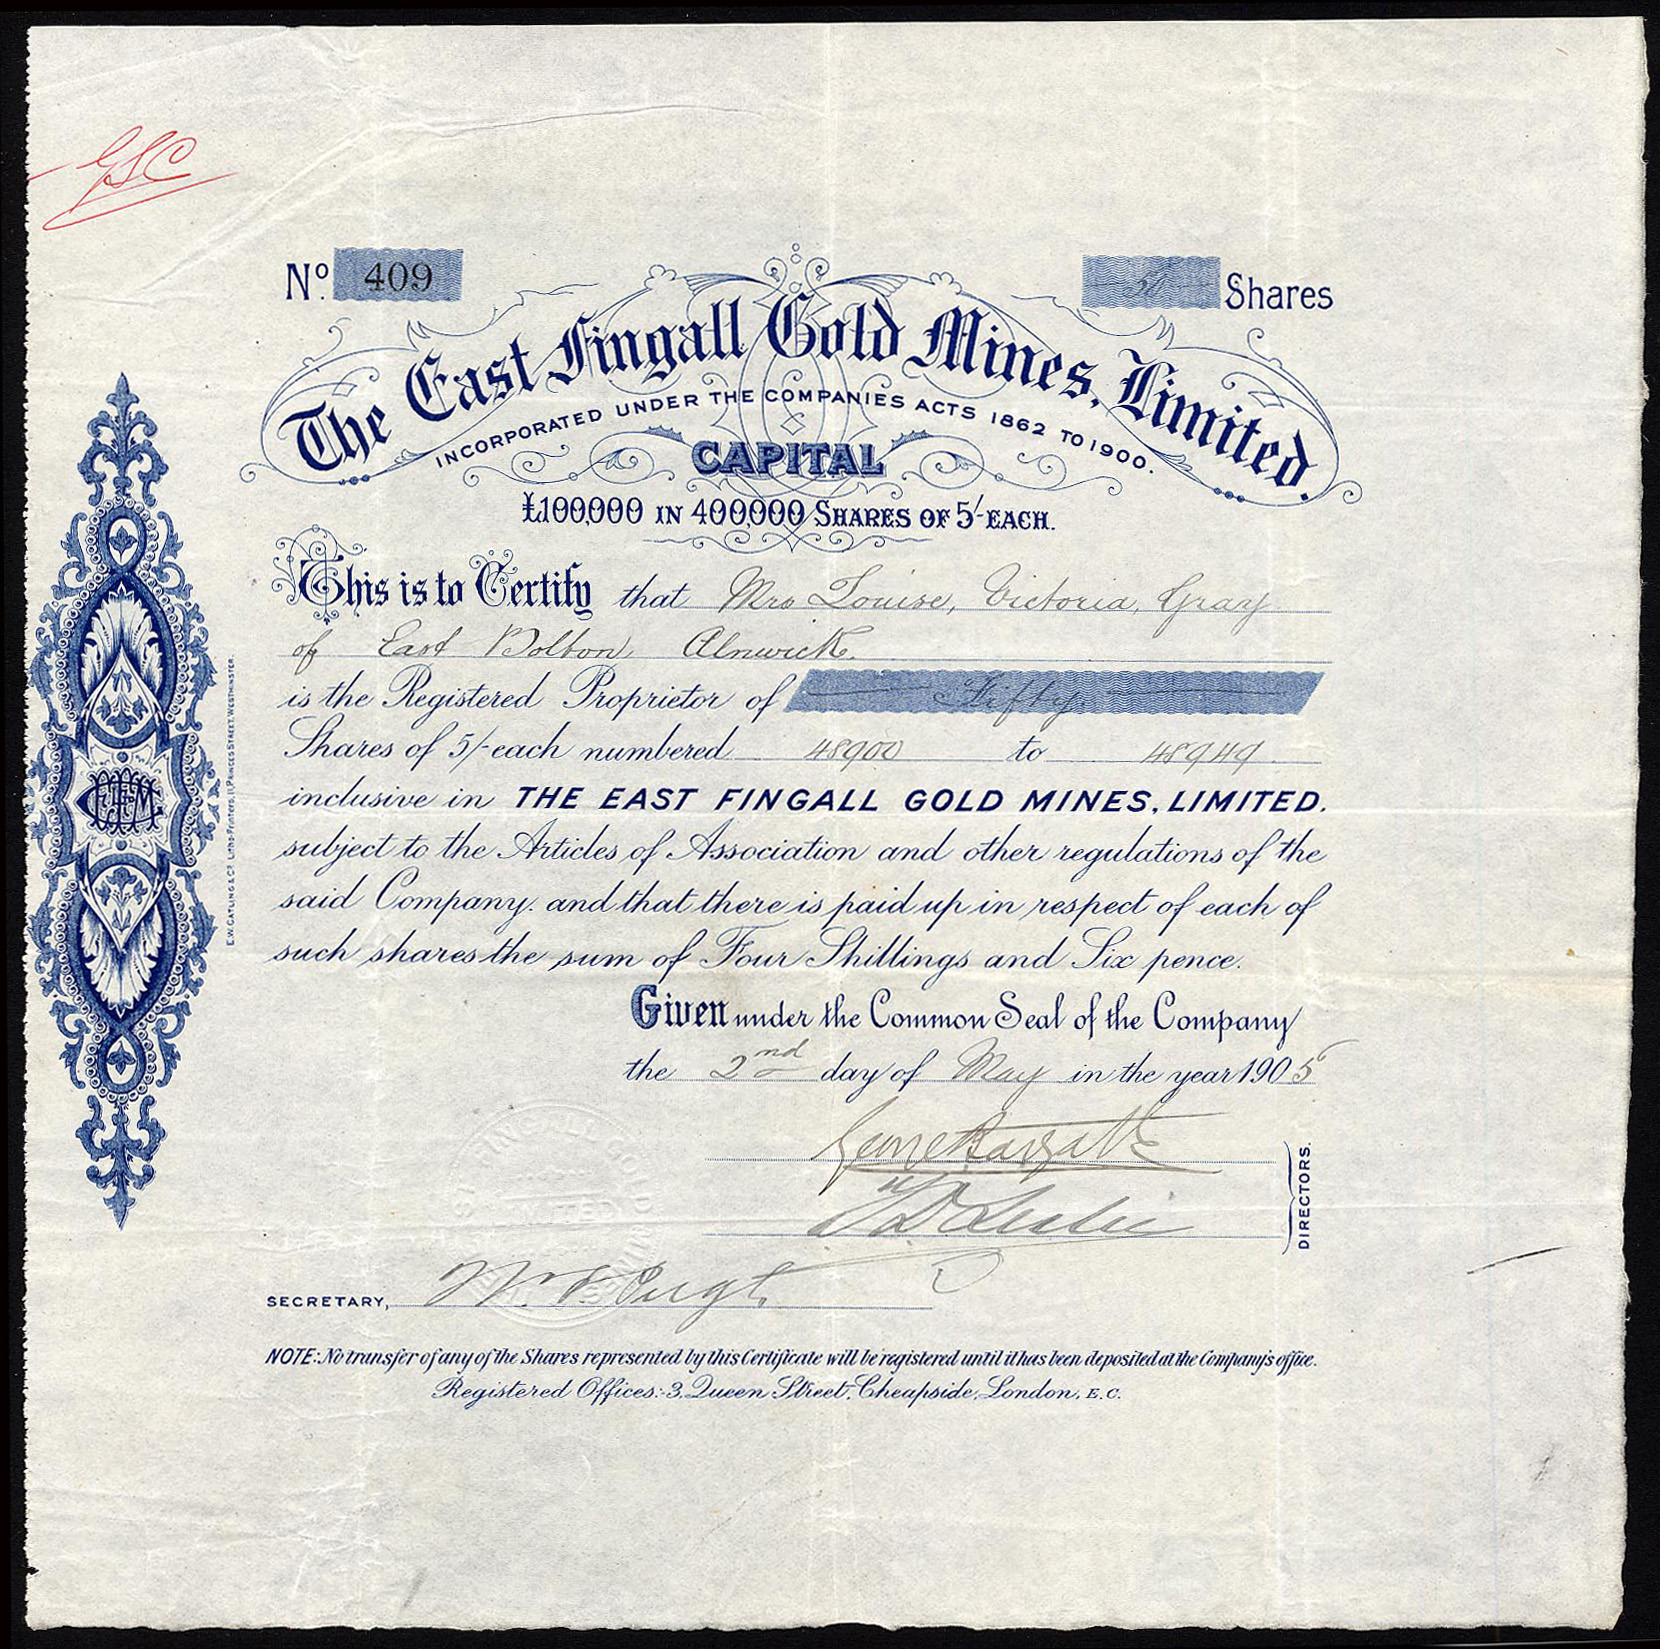 GSC
No. 409
50 Shares
The East Fingall Gold Mines, Limited.
INCORPORATED UNDER THE COMPANIES ACTS 1862 TO 1900.
CAPITAL
£100,000 IN 400,000 SHARES OF 5/- EACH.
This is to Certify that Mrs Louise, Victoria, Gray
of East Bolton, Alnwick.
is the Registered Proprietor of Fifty
Shares of 5/- each numbered 48900 to 48949
inclusive in THE EAST FINGALL GOLD MINES, LIMITED.
subject to the Articles of Association and other regulations of the
said Company. and that there is paid up in respect of each of
such shares the sum of Four Shillings and Six pence.
Given under the Common Seal of the Company
the 2nd day of May in the year 1905
Leslie
DIRECTORS.
SECRETARY,
NOTE:- No transfer of any of the Shares represented by this Certificate will be registered until it has been deposited at the Company's office.
Registered Offices:- 3, Queen Street, Cheapside, London, E.C.
E.W. CATLING & Co. Litho-Printers, 11, PRINCES STREET, WESTMINSTER.